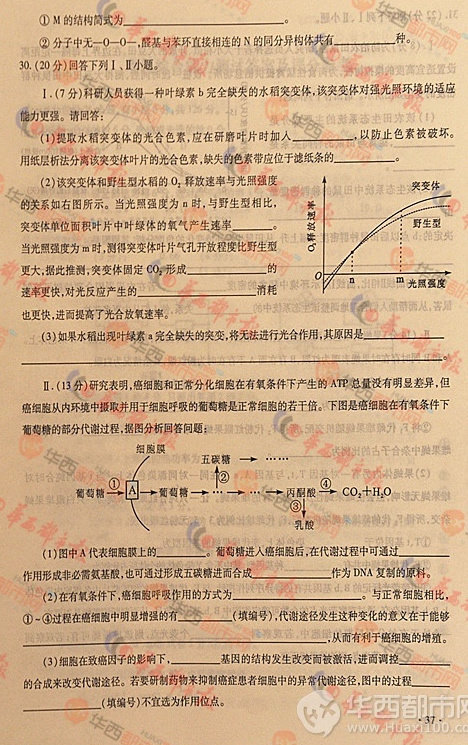 ① M的结构简式为 。
② 分子中无—O—O—,醛基与苯环直接相连的N的同分异构体共有 种。
30.(20分)回答下列Ⅰ、Ⅱ小题。
Ⅰ.(7分)科研人员获得一种叶绿素b完全缺失的水稻突变体,该突变体对强光照环境的适应
能力更强。请回答:
(1)提取水稻突变体的光合色素,应在研磨叶片时加入 ,以防止色素被破坏。
用纸层析法分离该突变体叶片的光合色素,缺失的色素带应位于滤纸条的 。
(2)该突变体和野生型水稻的O₂释放速率与光照强度
的关系如右图所示。当光照强度为n时,与野生型相比,
突变体单位面积叶片中叶绿体的氧气产生速率 。
当光照强度为m时,测得突变体叶片气孔开放程度比野生型
更大,据此推测,突变体固定CO₂形成 的
速率更快,对光反应产生的 消耗
也更快,进而提高了光合放氧速率。
O₂释放速率
突变体
野生型
O
n
m
光照强度
(3)如果水稻出现叶绿素a完全缺失的突变,将无法进行光合作用,其原因是
。
Ⅱ.(13分)研究表明,癌细胞和正常分化细胞在有氧条件下产生的ATP总量没有明显差异,但
癌细胞从内环境中摄取并用于细胞呼吸的葡萄糖是正常细胞的若干倍。下图是癌细胞在有氧条件下
葡萄糖的部分代谢过程,据图分析回答问题:
细胞膜
五碳糖 → ……
②
葡萄糖 ① A → 葡萄糖 → …… → 丙酮酸 ④ CO₂+H₂O
③
乳酸
(1)图中A代表细胞膜上的 。葡萄糖进入癌细胞后,在代谢过程中可通过
作用形成非必需氨基酸,也可通过形成五碳糖进而合成 作为DNA复制的原料。
(2)在有氧条件下,癌细胞呼吸作用的方式为 。与正常细胞相比,
①~④过程在癌细胞中明显增强的有 (填编号),代谢途径发生这种变化的意义在于能够
,从而有利于癌细胞的增殖。
(3)细胞在致癌因子的影响下, 基因的结构发生改变而被激活,进而调控
的合成来改变代谢途径。若要研制药物来抑制癌症患者细胞中的异常代谢途径,图中的过程
(填编号)不宜选为作用位点。
·37·
华西都市网
www.Huaxi100.com